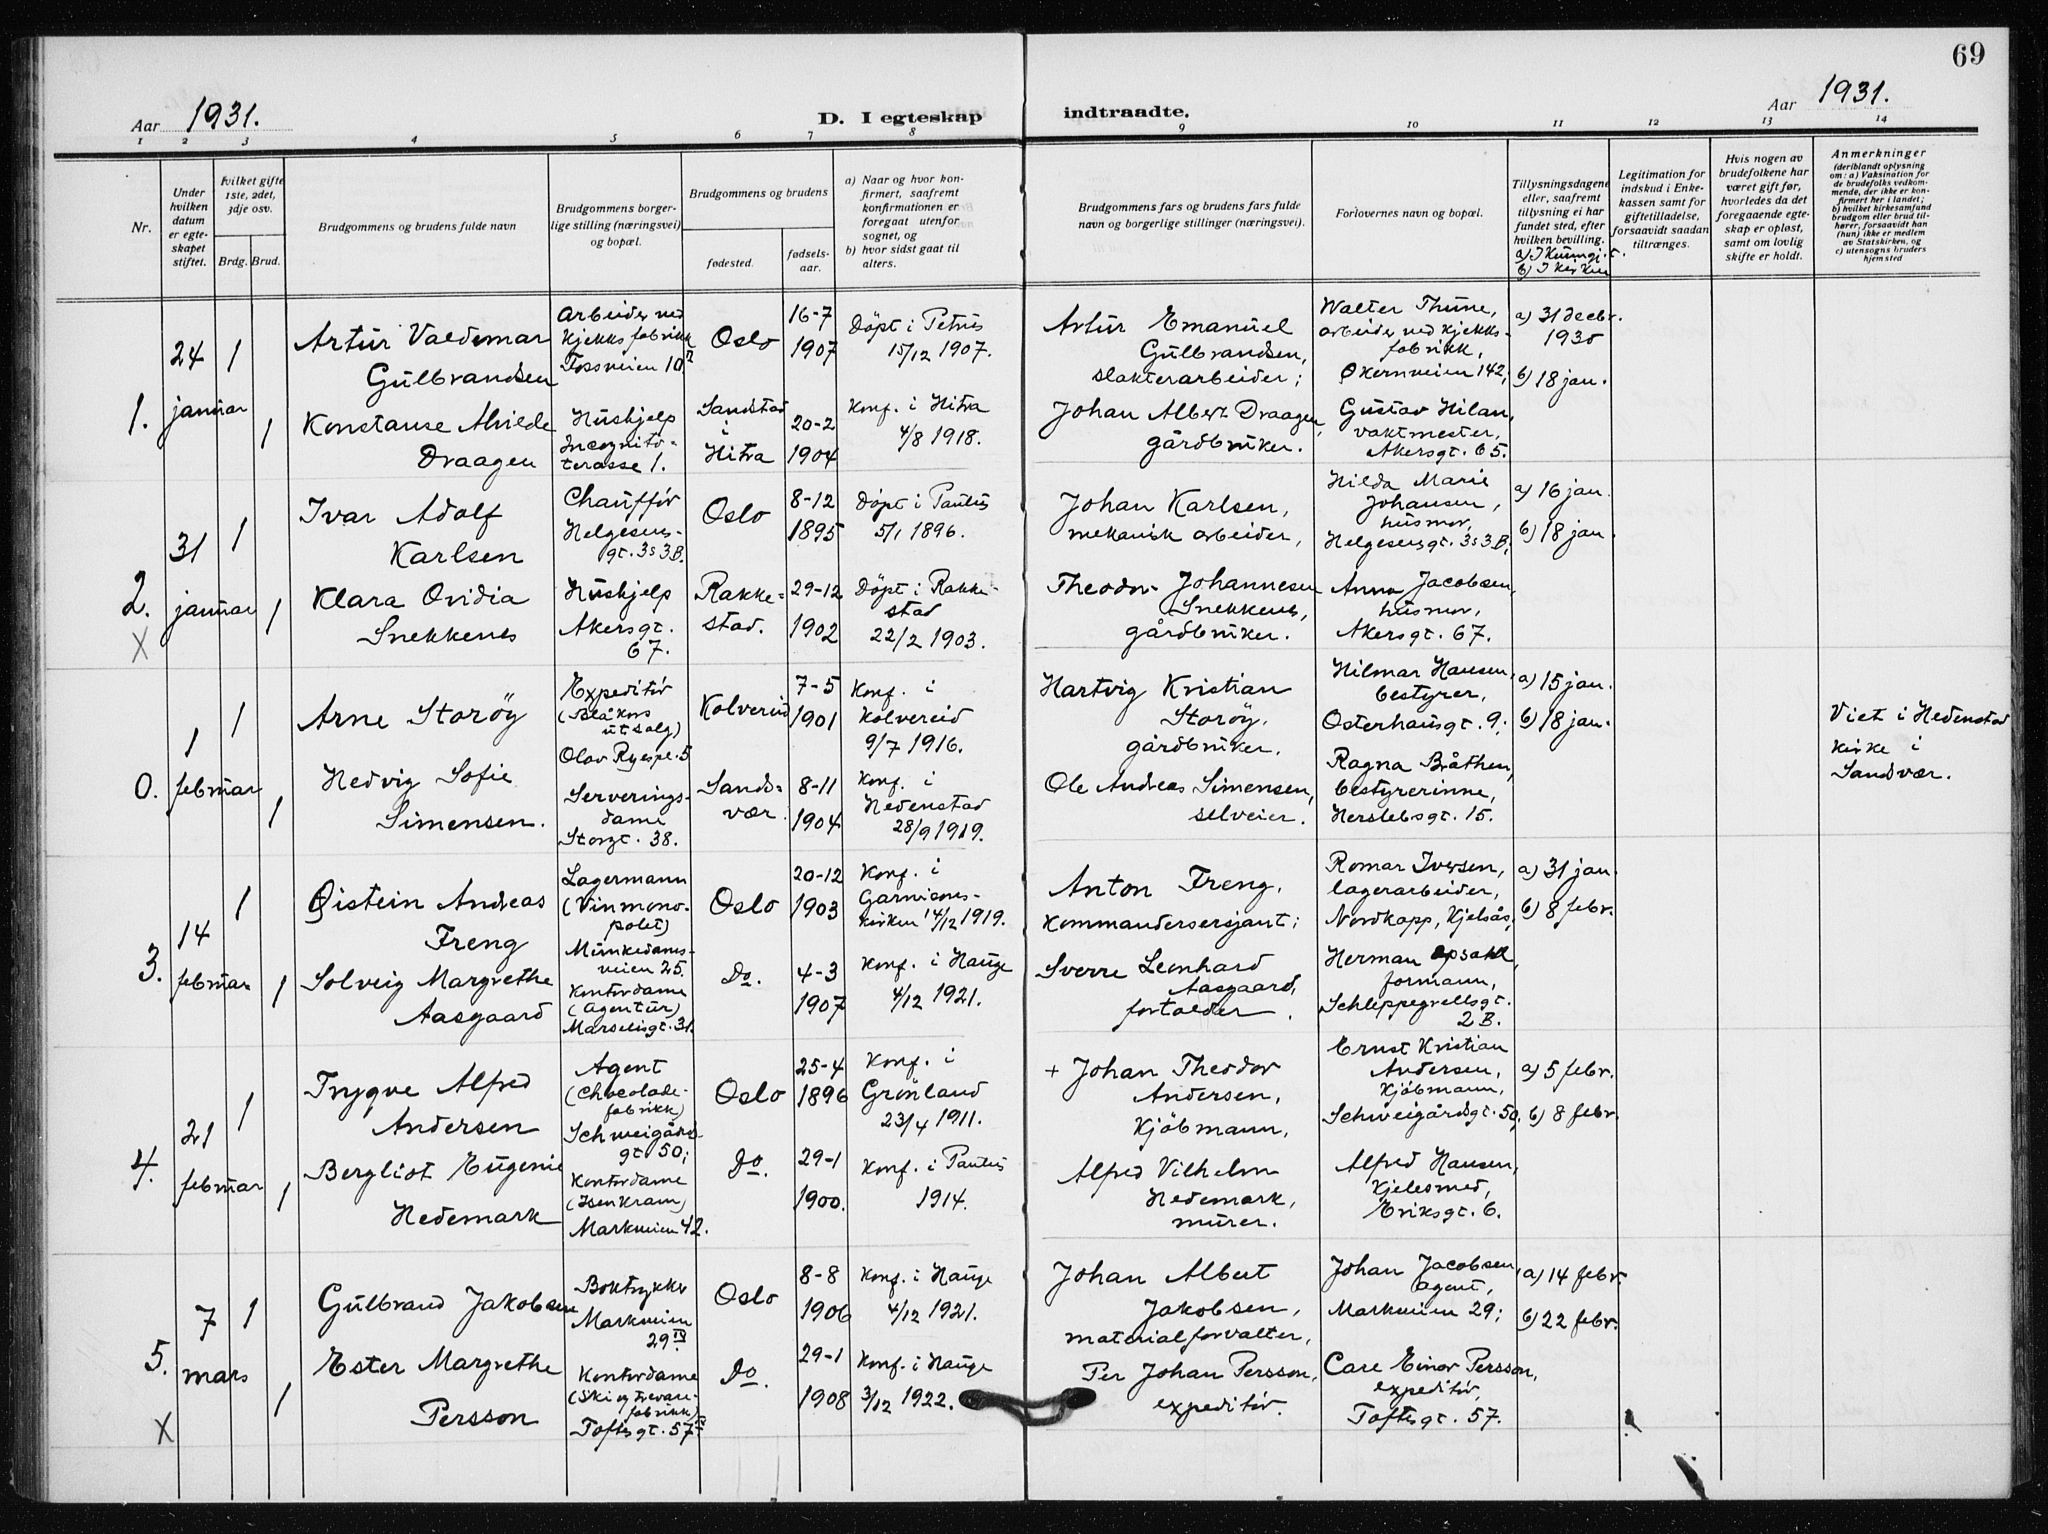 69
Aar 1931.
D. I egteskap indtraadte.
Aar 1931.
1 2 3 4 5 6 7 8 9 10 11 12 13 14
Nr.
Under hvilken datum er egteskapet stiftet.
hvilket gifte 1ste, 2det, 3dje osv.
Brdg. Brud.
Brudgommens og brudens fulde navn
Brudgommens borgerlige stilling (næringsvei) og bopæl.
Brudgommens og brudens
fødested.
fødselsaar.
a) Naar og hvor konfirmert, saafremt konfirmationen er foregaat utenfor sognet, og
b) hvor sidst gaat til alters.
Brudgommens fars og brudens fars fulde navn og borgerlige stillinger (næringsvei).
Forlovernes navn og bopæl.
Tillysningsdagene eller, saafremt tillysning ei har fundet sted, efter hvilken bevilling.
b) I kirken
Legitimation for indskud i Enkekassen samt for giftetilladelse, forsaavidt saadan tiltrænges.
Hvis nogen av brudefolkene har været gift før, hvorledes da det foregaaende egteskap er opløst, samt om lovlig skifte er holdt.
Anmerkninger
(deriblandt oplysning om: a) Vaksination for de brudefolks vedkommende, der ikke er konfirmert her i landet; b) hvilket kirkesamfund brudgom eller brud tilhører, forsaavidt han (hun) ikke er medlem av Statskirken, og c) utensogns bruders hjemsted
1.
24 januar
1
Artur Valdemar
Gulbrandsen
Arbeider ved
Kjeksfabrikk
Fossveien 10
Oslo
16-7
1907
Døpt i Petrus
15/12 1907.
Artur Emanuel
Gulbrandsen,
slakterarbeider;
Walter Thune,
arbeider ved kjeks-
fabrikk,
Økernveien 142;
a) 31 decbr.
1930
b) 18 jan.
1
Konstanse Alvilde
Draagen
Hushjelp
Incognito-
terasse 1.
Sandstad
i
Hitra
20-2
1904
Konf. i Hitra
4/8 1918.
Johan Albert Draagen,
gårdbruker.
Gustav Hilan,
vaktmester,
Akersgt. 65.
2.
X
31 januar
1
Ivar Adolf
Karlsen
Chauffør
Helgesens-
gt. 3s3B.
Oslo
8-12
1895
Døpt i Paulus
5/1 1896.
Johan Karlsen,
mekanisk arbeider,
Hilda Marie
Johansen,
husmor,
Helgesensgt. 3s3B,
a) 16 jan.
b) 18 jan.
1
Klara Ovidia
Snekkenes
Hushjelp
Akersgt.
67.
Rakke-
stad.
29-12
1902
Døpt i Rakke-
stad
22/2 1903.
Theodor Johannesen
Snekkenes,
gårdbruker.
Anna Jacobsen,
husmor,
Akersgt. 67.
0.
1 februar
1
Arne Storøy
Expeditør
(Blåkors
utsalg)
Olav Ryespl. 5
Kolvereid
7-5
1901
Konf. i
Kolvereid
9/7 1916.
Hartvig Kristian
Storøy,
gårdbruker.
Hilmar Hansen,
bestyrer,
Osterhausgt. 9;
a) 15 jan.
b) 18 jan.
Viet i Hedenstad
kirke i
Sandsvær.
1
Hedvig Sofie
Simensen.
Serverings-
dame
Storgt. 38.
Sands-
vær.
8-11
1904
Konf. i
Hedenstad
28/9 1919.
Ole Andreas Simensen,
selveier.
Ragna Bråthen,
bestyrerinne,
Herslebsgt. 15.
3.
14 februar
1
Øistein Andreas
Freng
Lagermann
(Vinmono-
polet)
Munkedams-
veien 25.
Oslo
20-12
1903
Konf. i
Garnisons-
kirken 14/12 1919.
Anton Freng,
kommandersersjant;
Romar Iversen,
lagerarbeider,
Nordkapp, Kjelsås;
a) 31 jan.
b) 8 febr.
1
Solveig Margrethe
Aasgaard
Kontordame
(agentur)
Marselisgt. 31.
Do.
4-3
1907
Konf. i Hauge
4/12 1921.
Sverre Leonhard
Aasgaard,
fortolder.
Herman Opsahl,
formann,
Schleppegrellsgt.
2B.
4.
21 februar
1
Trygve Alfred
Andersen
Agent
(Chocolade-
fabrikk)
Schweigårds-
gt 50;
Oslo
25-4
1896
Konf. i
Grønland
23/4 1911.
+ Johan Theodor
Andersen,
Kjøbmann,
Ernst Kristian
Andersen,
Kjøbmann,
Schweigårdsgt. 50;
a) 5 febr.
b) 8 febr.
1
Bergliot Eugenie
Hedemark
Kontordame
(Isenkram)
Markveien 42.
Do.
29-1
1900.
Konf. i Paulus
1914.
Alfred Vilhelm
Hedemark,
murer.
Alfred Hansen,
Kjelesmed,
Eriksgt. 6.
5.
X
7 mars
1
Gulbrand Jakobsen
Boktrykker
Markveien
29 IV
Oslo
8-8
1906
Konf. i Hauge
4/12 1921.
Johan Albert
Jakobsen,
materialforvalter,
Johan Jacobsen,
agent,
Markveien 29;
a) 14 febr.
b) 22 febr.
1
Ester Margrethe
Persson
Kontordame
(Ski og trevare-
fabrikk)
Toftesgt. 57
Do.
29-1
1908
Konf. i Hauge
3/12 1922.
Per Johan Persson,
expeditør.
Care Einar Persson,
expeditør,
Toftesgt. 57.